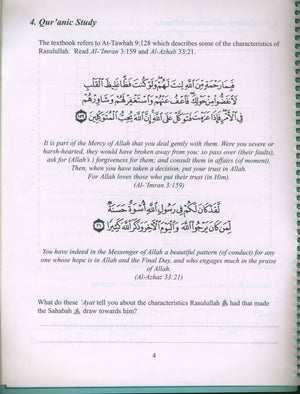 4. Qur'anic Study
The textbook refers to At-Tawbah 9:128 which describes some of the characteristics of
Rasulullah. Read Al-'Imran 3:159 and Al-Azhab 33:21.
فَبِمَا رَحْمَةٍ مِّنَ اللَّهِ لِنتَ لَهُمْ وَلَوْ كُنتَ فَظًّا غَلِيظَ الْقَلْبِ
لَانفَضُّوا مِنْ حَوْلِكَ فَاعْفُ عَنْهُمْ وَاسْتَغْفِرْ لَهُمْ وَشَاوِرْهُمْ
فِي الْأَمْرِ فَإِذَا عَزَمْتَ فَتَوَكَّلْ عَلَى اللَّهِ إِنَّ اللَّهَ يُحِبُّ الْمُتَوَكِّلِينَ ١٥٩
It is part of the Mercy of Allah that you deal gently with them. Were you severe or
harsh-hearted, they would have broken away from you: so pass over (their faults),
ask for (Allah's ) forgiveness for them; and consult them in affairs (of moment).
Then, when you have taken a decision, put your trust in Allah.
For Allah loves those who put their trust (in Him).
(Al-'Imran 3:159)
لَّقَدْ كَانَ لَكُمْ فِي رَسُولِ اللَّهِ أُسْوَةٌ حَسَنَةٌ
لِّمَن كَانَ يَرْجُو اللَّهَ وَالْيَوْمَ الْآخِرَ وَذَكَرَ اللَّهَ كَثِيرًا ٢١
You have indeed in the Messenger of Allah a beautiful pattern (of conduct) for any
one whose hope is in Allah and the Final Day, and who engages much in the praise
of Allah.
(Al-Azhaz 33:21)
What do these 'Ayat tell you about the characteristics Rasulullah ﷺ had that made
the Sahabah draw towards him?
4